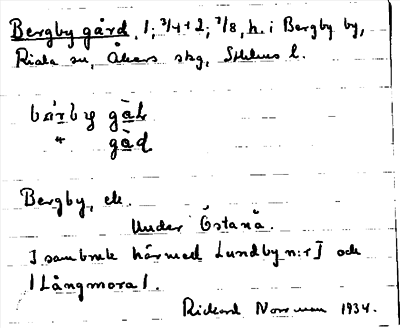 Bergby gård, 1; 3/4 + 2; 7/8, h. i Bergby by,
Riala sn, Åkers skg, Sthlms l.
bærby gàɖ
" gàd
Bergby, ek.
Under Östanå.
I sambruk härmed Lundby n:r I och
/Långmora/.
Rickard Norrman 1934.